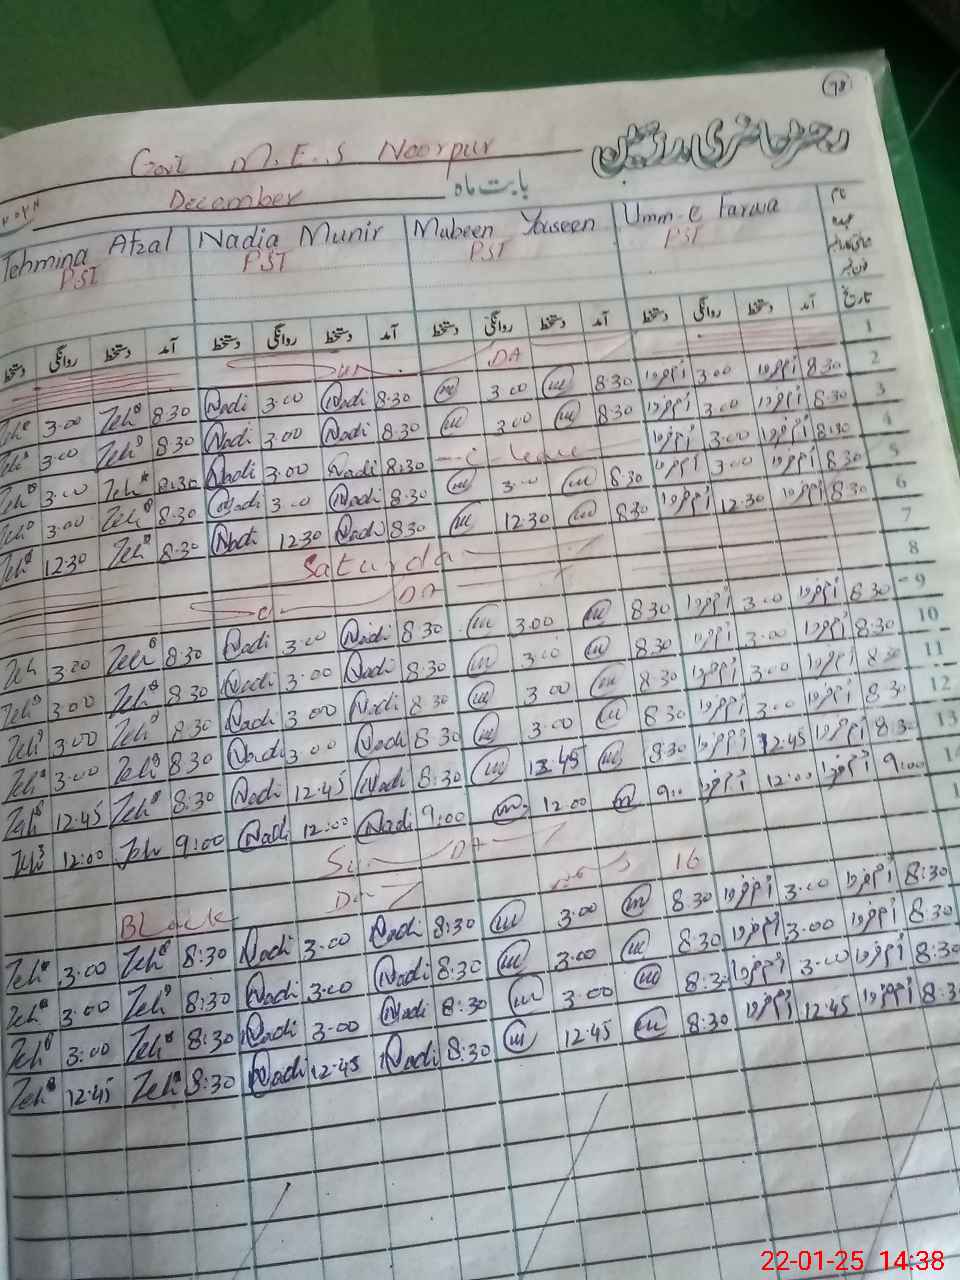 78
رجسٹر حاضری مدرسین
Govt M.E.S Noorpur
December بابت ماہ
۲۰۲۴
Tehmina Afzal Nadia Munir Mubeen Youseen Umm-e Farwa نام
PST PST PST PST عہدہ
دستخط روانگی دستخط آمد دستخط روانگی دستخط آمد دستخط روانگی دستخط آمد دستخط روانگی دستخط آمد تاریخ
Sun DA 1
Teh 3:00 Teh 8:30 Nadi 3:00 Nadi 8:30 m 3:00 m 8:30 ام فروا 3:00 ام فروا 8:30 2
Teh 3:00 Teh 8:30 Nadi 3:00 Nadi 8:30 m 3:00 m 8:30 ام فروا 3:00 ام فروا 8:30 3
Teh 3:00 Teh 8:30 Nadi 3:00 Nadi 8:30 C-leave ام فروا 3:00 ام فروا 8:30 4
Teh 3:00 Teh 8:30 Nadi 3:00 Nadi 8:30 m 3:00 m 8:30 ام فروا 3:00 ام فروا 8:30 5
Teh 12:30 Teh 8:30 Nadi 12:30 Nadi 8:30 m 12:30 m 8:30 ام فروا 12:30 ام فروا 8:30 6
Saturda 7
DA 8
Teh 3:00 Teh 8:30 Nadi 3:00 Nadi 8:30 m 3:00 m 8:30 ام فروا 3:00 ام فروا 8:30 9
Teh 3:00 Teh 8:30 Nadi 3:00 Nadi 8:30 m 3:00 m 8:30 ام فروا 3:00 ام فروا 8:30 10
Teh 3:00 Teh 8:30 Nadi 3:00 Nadi 8:30 m 3:00 m 8:30 ام فروا 3:00 ام فروا 8:30 11
Teh 3:00 Teh 8:30 Nadi 3:00 Nadi 8:30 m 3:00 m 8:30 ام فروا 3:00 ام فروا 8:30 12
Teh 12:45 Teh 8:30 Nadi 12:45 Nadi 8:30 m 12:45 m 8:30 ام فروا 12:45 ام فروا 8:30 13
Teh 12:00 Teh 9:00 Nadi 12:00 Nadi 9:00 m 12:00 m 9:00 ام فروا 12:00 ام فروا 9:00 14
Su DA 1
Black Da 16
Teh 3:00 Teh 8:30 Nadi 3:00 Nadi 8:30 m 3:00 m 8:30 ام فروا 3:00 ام فروا 8:30
Teh 3:00 Teh 8:30 Nadi 3:00 Nadi 8:30 m 3:00 m 8:30 ام فروا 3:00 ام فروا 8:30
Teh 3:00 Teh 8:30 Nadi 3:00 Nadi 8:30 m 3:00 m 8:30 ام فروا 3:00 ام فروا 8:30
Teh 12:45 Teh 8:30 Nadi 12:45 Nadi 8:30 m 12:45 m 8:30 ام فروا 12:45 ام فروا 8:3
22-01-25 14:38